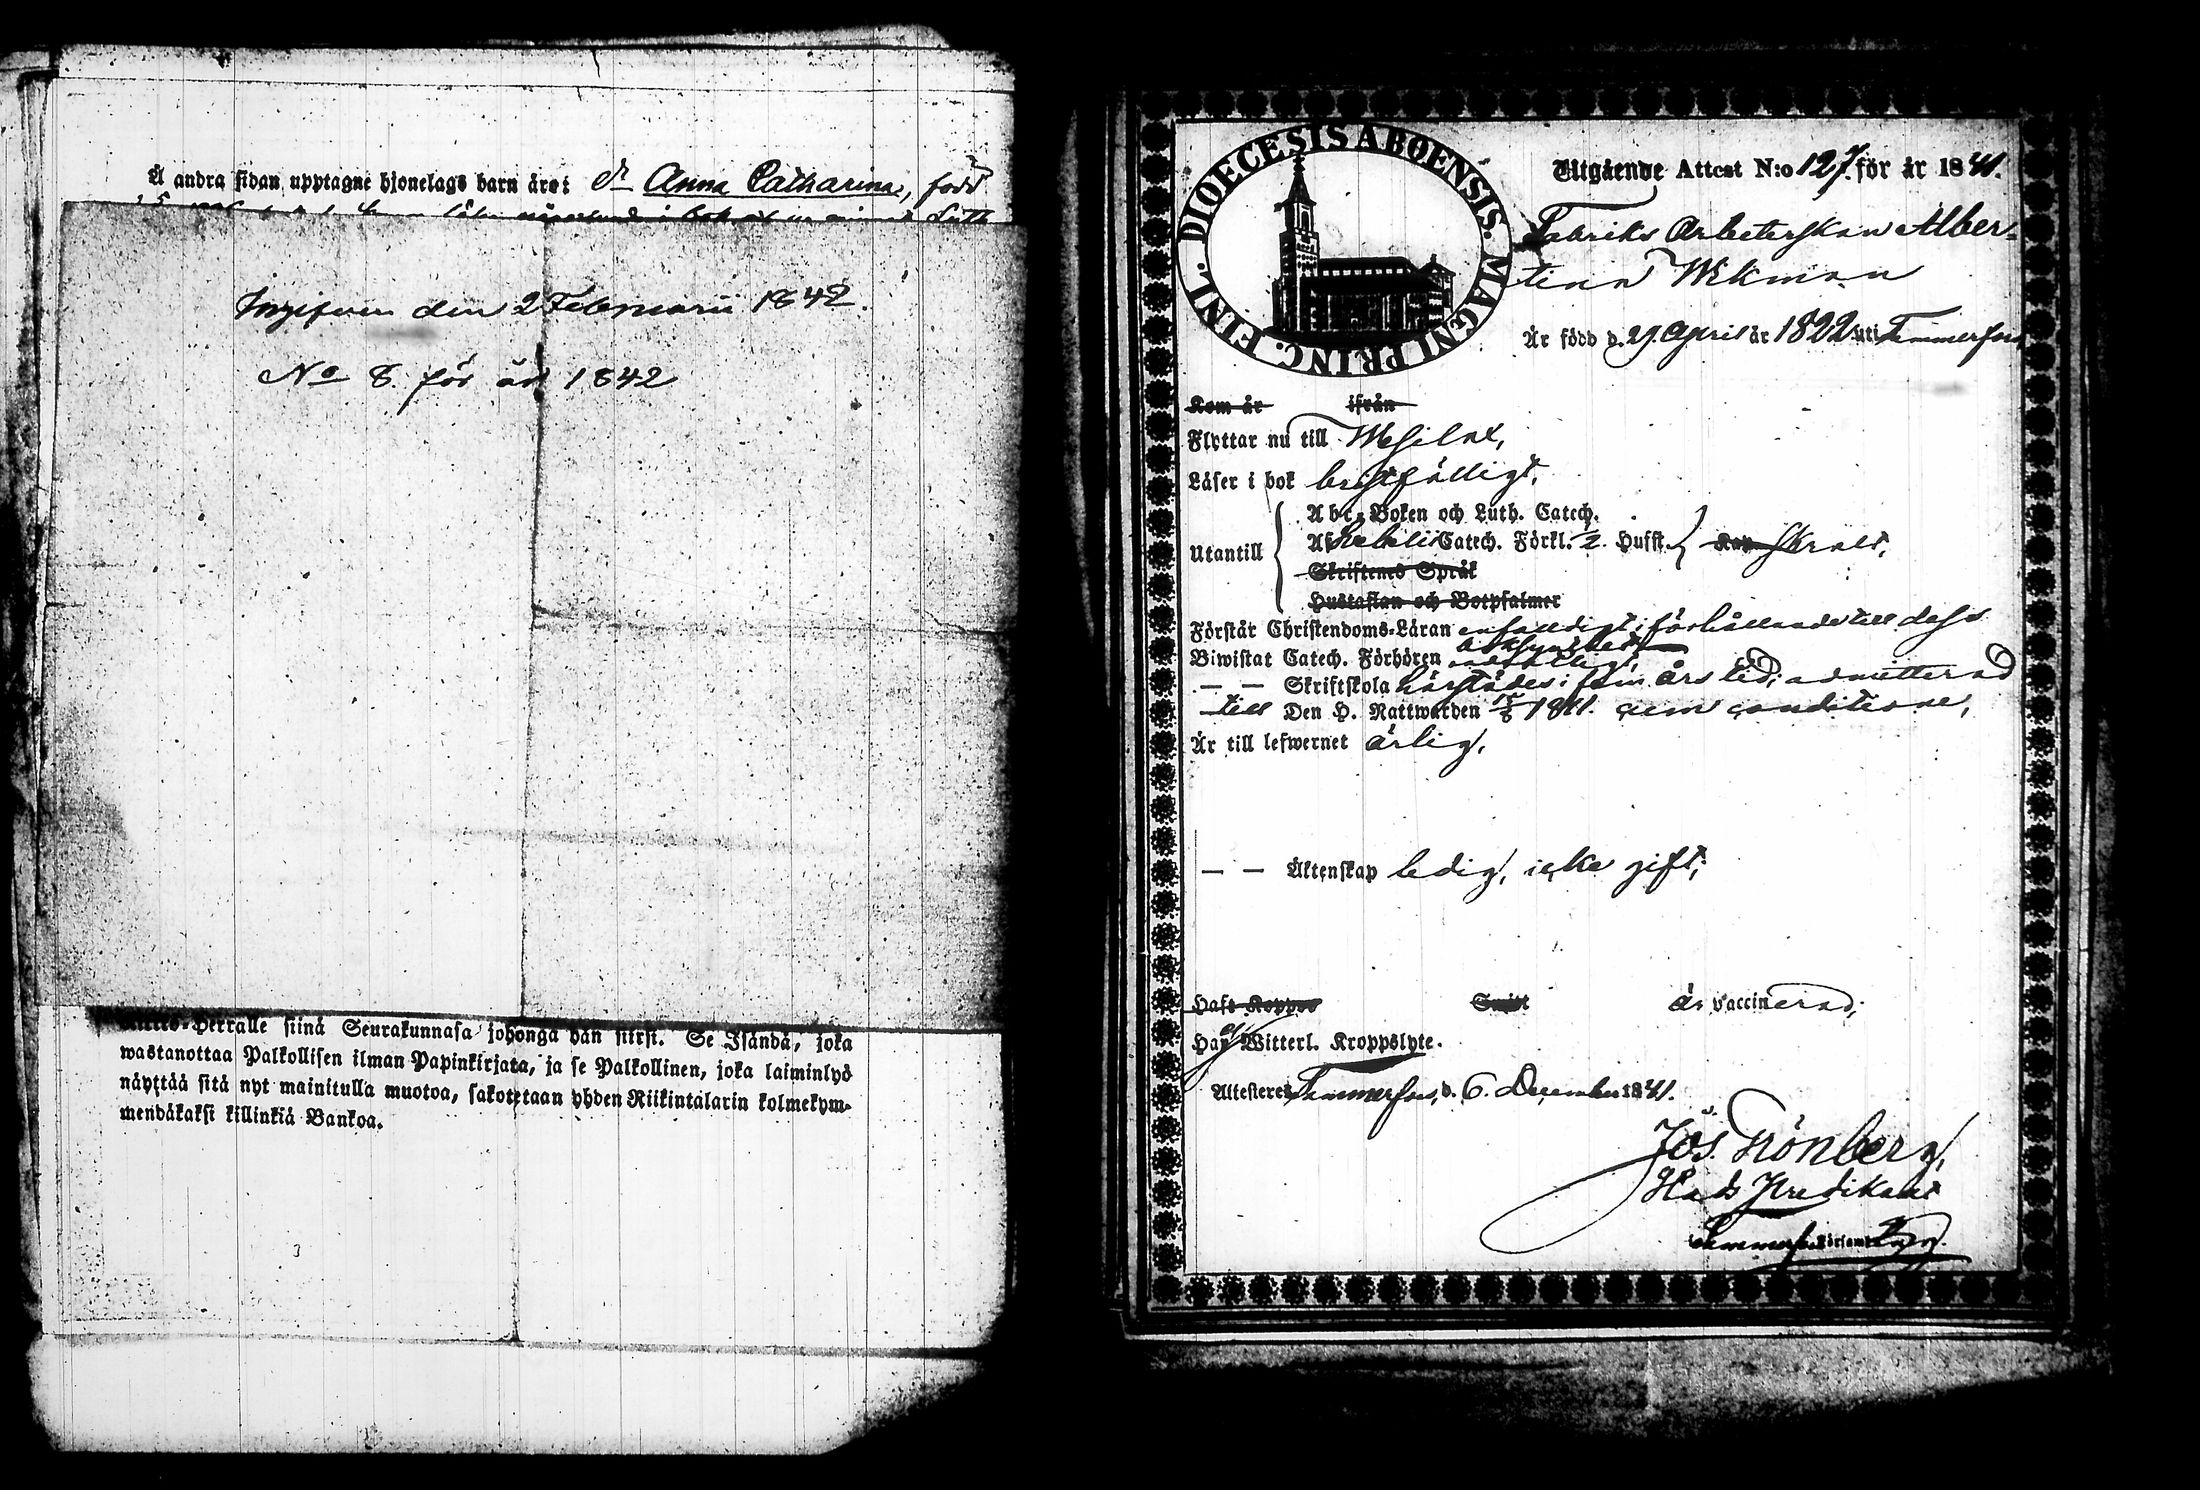 Å andra sidan upptagne hjonelags barn äro: dr Anna Catharina, född
Ingifven den 2 Februarii 1842.
No 8. för år 1842
Herralle siinä Seurakunnasa johonga hän siirsi. Se Isändä, joka
wastanottaa Palkollisen ilman Papinkirjata, ja se Palkollinen, joka laiminlyö
näyttää sitä nyt mainitulla muotoa, sakotetaan yhden Riikintalarin kolmekym-
mendäkaksi killinkiä Bankoa.
3
DIOECESIS ABOENSIS. MAGNI PRINC. FINL.
Utgående Attest N:o 127. för år 1841.
Fabriks Arbeterskan Alber-
tina Wikman
Är född d. 29. April år 1822 uti Tammerfors,
Kom år ifrån
Flyttar nu till Wesilax,
Läser i bok bristfälligt,
Utantill
Abc-Boken och Luth. Catech.
Af Svebelii Catech. Förkl. 2. Hufst. Kan Skralt,
Skriftenes Språk
Hustaflan och Botpsalmer
Förstår Christendoms-Läran enfaldigt i förhållande till dess
Biwistat Catech. Förhören
— — Skriftskola härstädes i fem års tid; admitterad
till Den H. Nattwarden 1841. cum conditione,
Är till lefwernet ärlig,
— — Äktenskap ledig, icke gift;
Haft Koppor Smitt är vaccinerad;
Har ej Witterl. Kroppslyte.
Attesterer Tammerfors, d. 6. December 1841.
Jos. Grönberg,
Stads Predikant